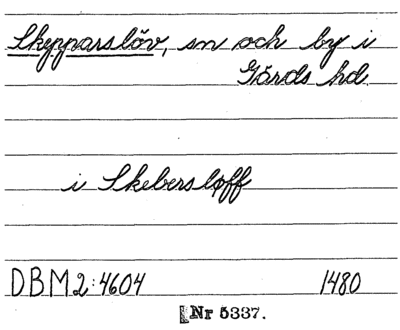 Skepparslöv, sn och by i
Gärds hd.
i Skebersløff
DBM2:4604 1480
Nr 5337.